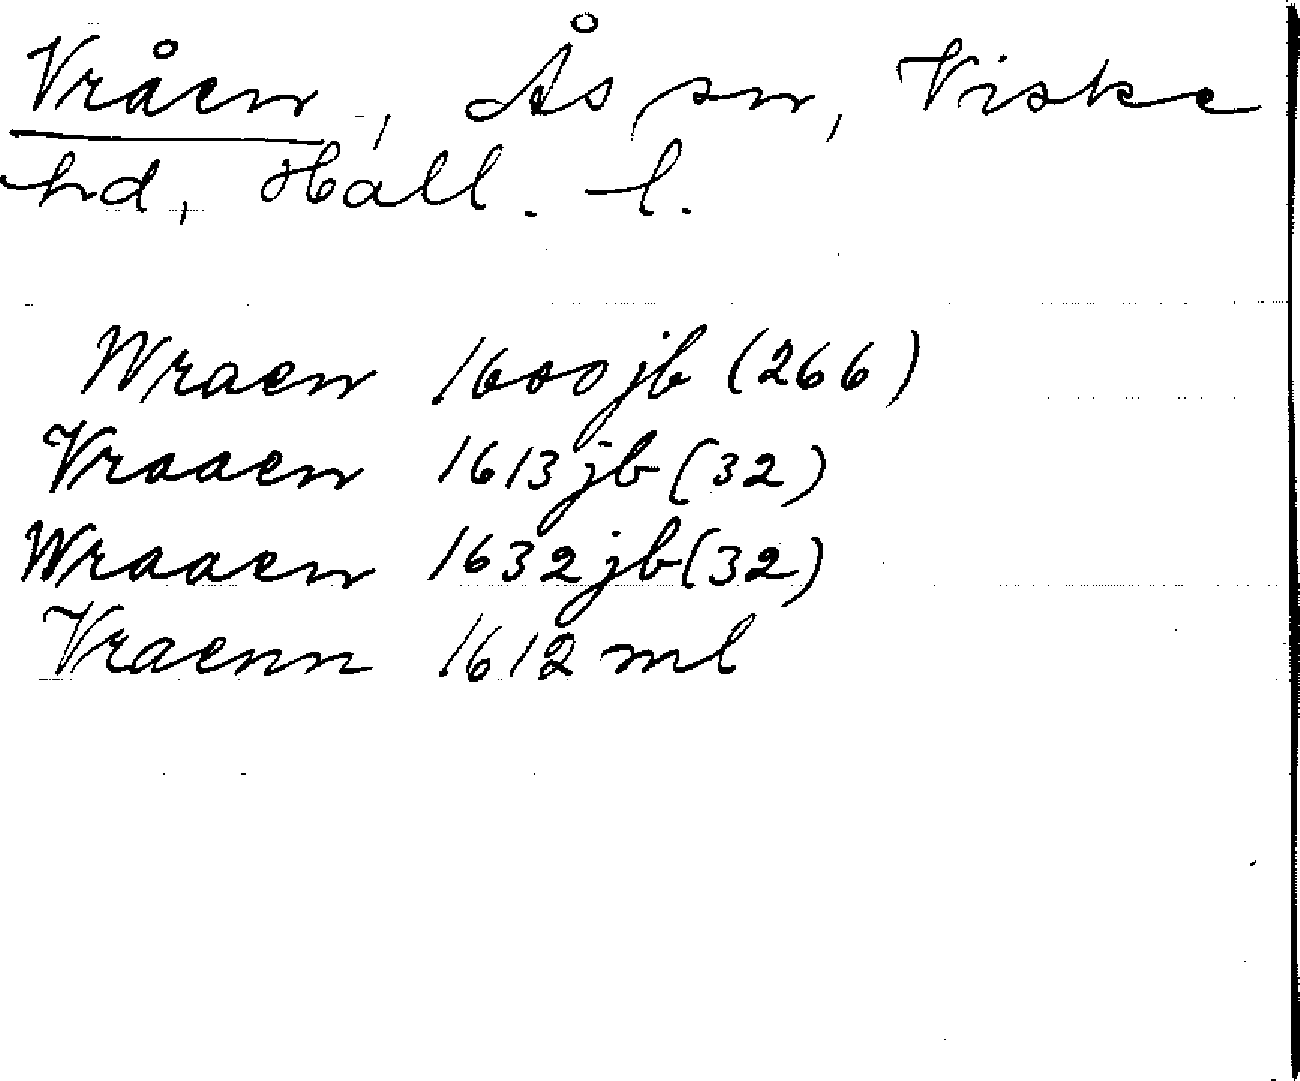 Vråen, Ås sn, Viske
hd, Hall. l.
Wraen 1600 jb (266)
Vraaen 1613 jb (32)
Wraaen 1632 jb (32)
Vraenn 1612 ml